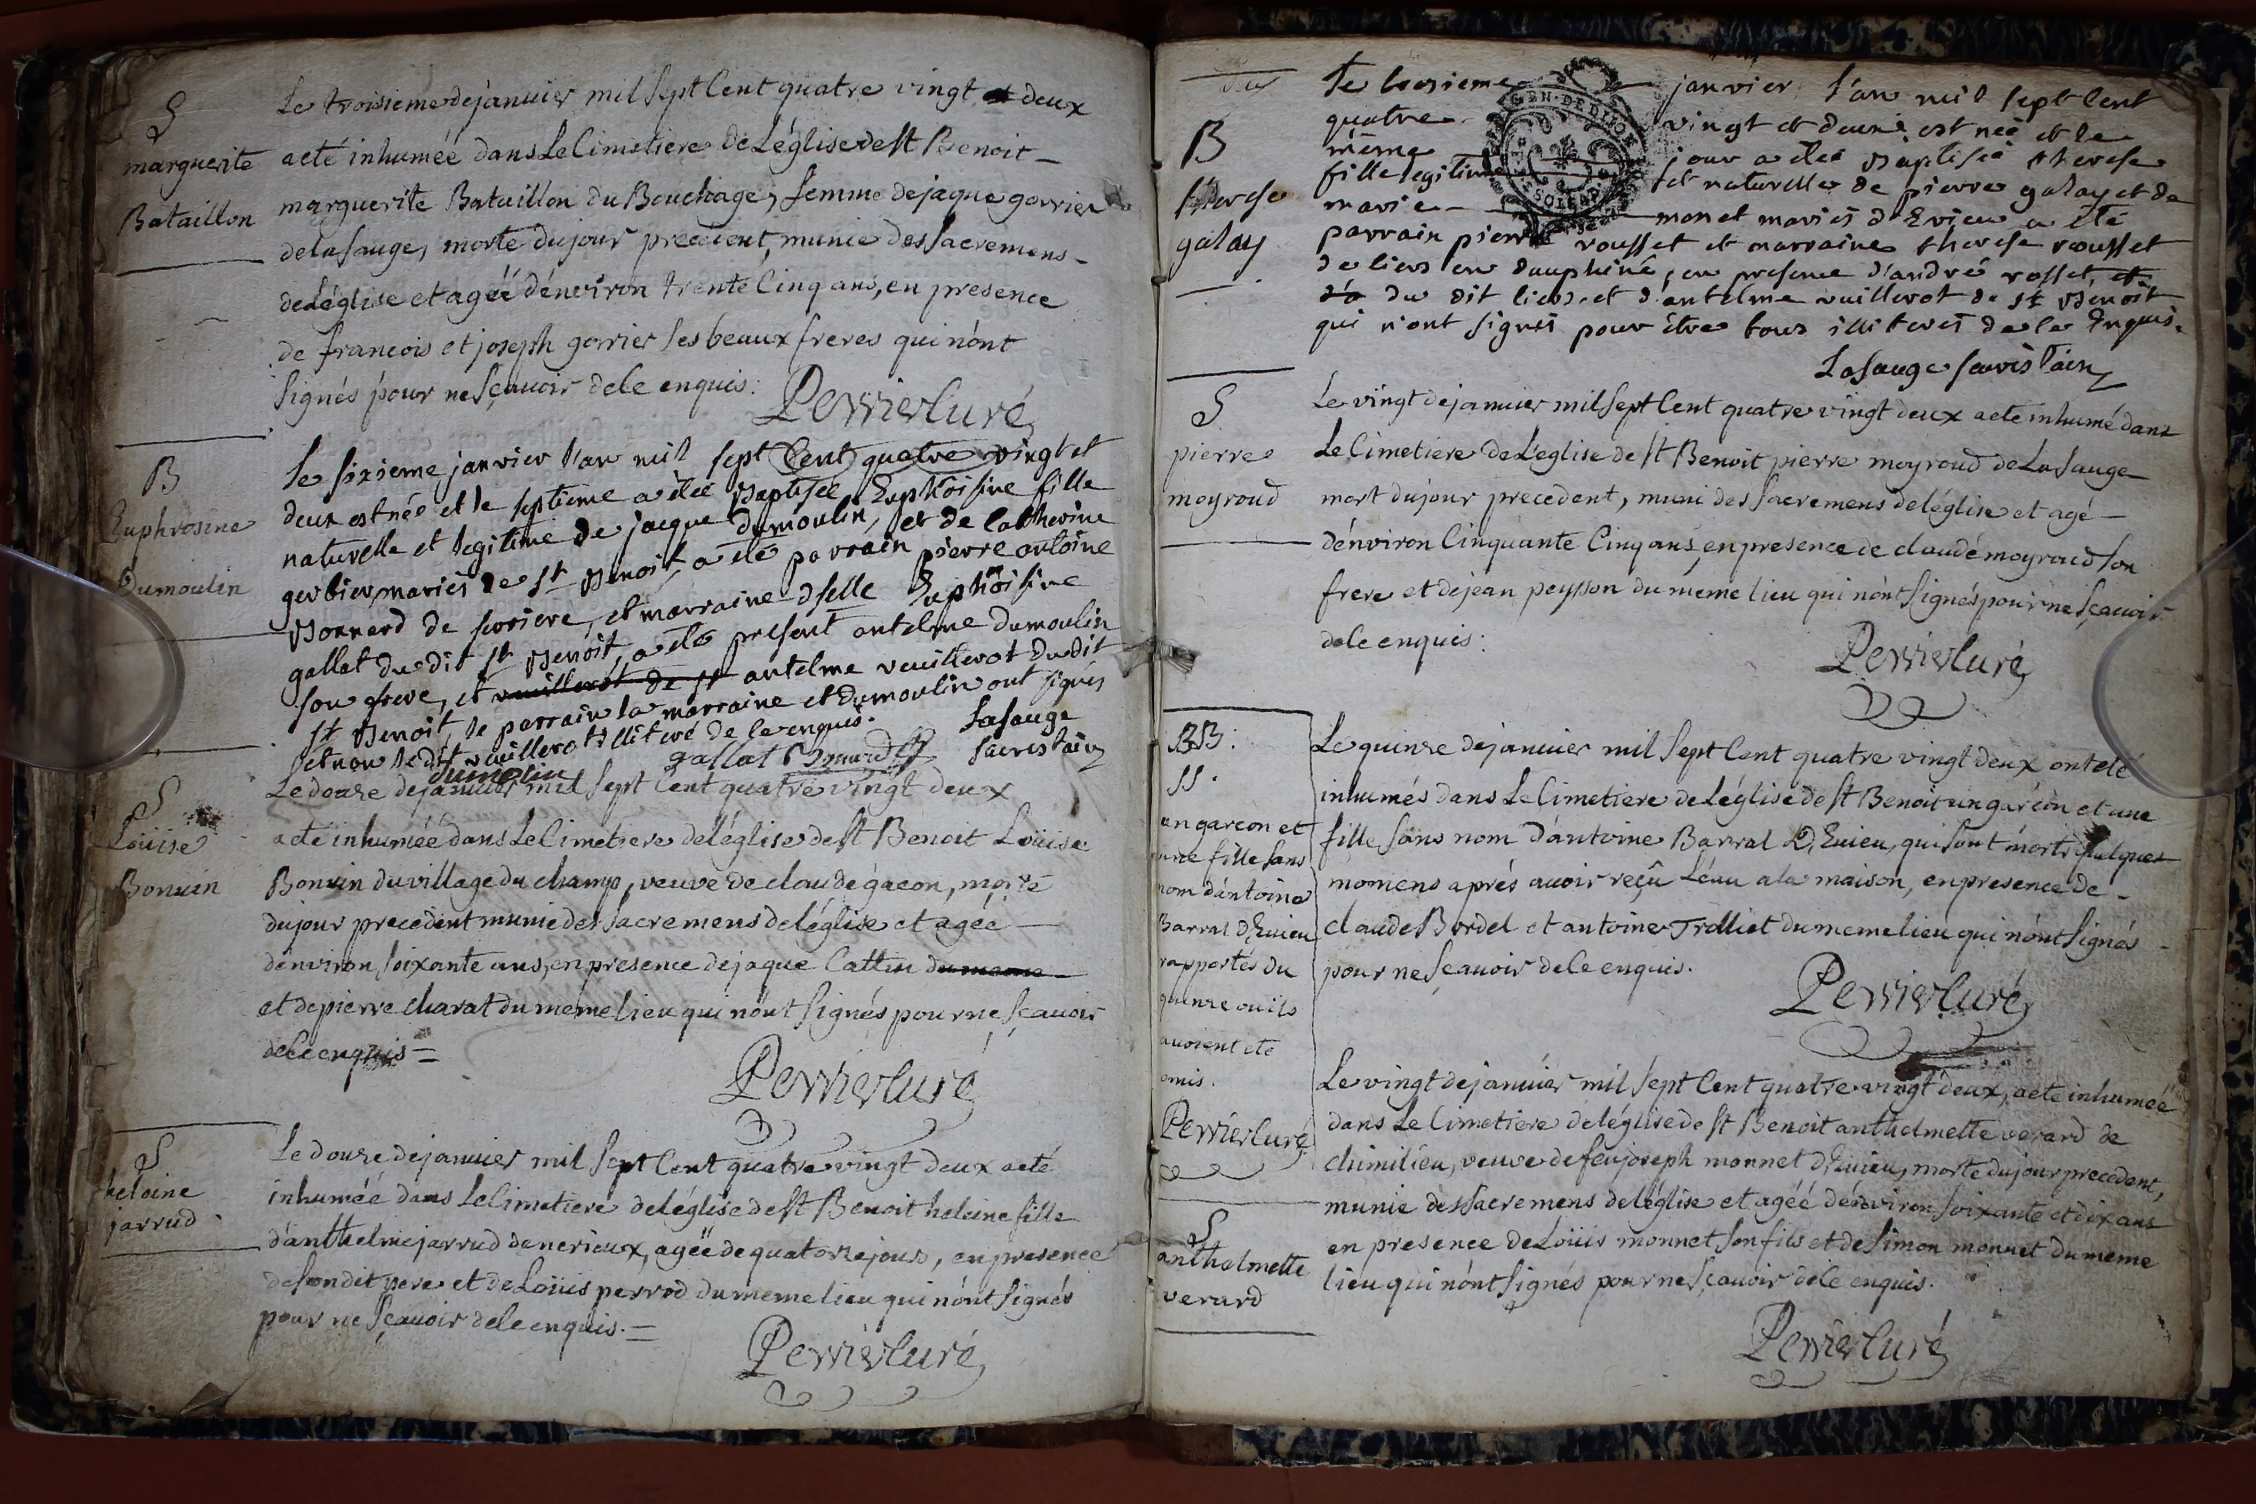 S
marguerite
Bataillon
Le troisieme de janvier mil sept Cent quatre vingt et deux
a eté inhumée dans Le Cimetiere de L'église de st Benoit
marguerite Bataillon du Bouchage, femme de jaque gorrier
de la sauge, morte du jour precedent, munie des sacremens
de L'église et agéé d'environ trente Cinq ans, en presence
de francois et joseph gorrier ses beaux freres qui n'ont
signés pour ne sçavoir de le enquis:
Perrier Curé
B
Euphrosine
Dumoulin
Le sixieme janvier l'an mil sept Cent quatre vingt et
deux est née et le septieme a eteé Baptisée Euphroisine fille
naturelle et legitime de jacque dumoulin, et de Catherine
gerbier mariés de st Benoit, a eté parrain pierre antoine
Bonnard de seoriere, et marraine dselle Euphroisine
gallat du dit st Benoit, a eté present antelme dumoulin
son frere, et vuillerot de st antelme vuillerot du dit
st Benoit, le parrain la marraine et dumoulin ont signés
et non le dit vuillerot illiteré de le enquis.
gallat Bonnard Lasauge
dumolin sacristain
S
Loüise
Bonvin
Le douze de janvier mil sept Cent quatre vingt deux
a eté inhumée dans Le Cimetiere de l'église de st Benoit Loüise
Bonvin du village du champ, veuve de claude gacon, morte
du jour precedent munie des sacremens de l'église et agéé
d'environ soixante ans, en presence de jaque Cattin du meme
et de pierre charat du meme lieu qui n'ont signés pour ne sçavoir
de le enquis =
Perrier Curé
S
heloine
jarrud
Le douze de janvier mil sept Cent quatre vingt deux a eté
inhuméé dans Le Cimetiere de l'église de st Benoit heleine fille
d'anthelme jarrud de nerieux, agéé de quatorze jours, en presence
de son dit pere et de Loüis perrod du meme lieu qui n'ont signés
pour ne sçavoir de le enquis. =
Perrier Curé
B
therese
galay
Le troisieme janvier l'an mil sept Cent
quatre vingt et deux est née et le
même jour a eteé Baptisée therese
fille legitime et naturelle de pierre galay et de
marie monet mariés d'Evieu a eté
parrain pierre rousset et marraine therese rousset
de liers en dauphiné, en presence d'andré rosset, et
d'a du dit liers et d'antelme vuillerot de st Benoit
qui n'ont signés pour être tous illiterés de le Enquis.
Lasauge sacristain
GEN. DE DIJON
S
pierre
moyroud
Le vingt de janvier mil sept Cent quatre vingt deux a eté inhumé dans
Le Cimetiere de L'eglise de st Benoit pierre moyroud de La sauge
mort du jour precedent, muni des sacremens de l'église et agé
d'environ Cinquante Cinq ans, en presence de claude moyroud son
frere et de jean peysson du meme lieu qui n'ont signés pour ne sçavoir
de le enquis:
Perrier Curé
BB:
SS.
un garcon et
une fille sans
nom d'antoine
Barral d'Euieu
rapportés du
quinze ou ils
avoient eté
omis.
Perrier Curé
Le quinze de janvier mil sept Cent quatre vingt deux ont eté
inhumés dans Le Cimetiere de L'église de st Benoit un garcon et une
fille sans nom d'antoine Barral d'Euieu, qui sont morts quelques
momens aprés avoir reçû L'eau a la maison, en presence de
claude Bordel et antoine Trolliet du meme lieu qui n'ont signés
pour ne sçavoir de le enquis.
Perrier Curé
S
anthelmette
verard
Le vingt de janvier mil sept Cent quatre vingt deux, a eté inhuméé
dans Le Cimetiere de l'église de st Benoit anthelmette verard de
chimilieu, veuve de feu joseph monnet d'Euieu, morte du jour precedent,
munie des sacremens de l'église et agéé d'environ soixante et dix ans
en presence de Loüis monnet son fils et de simon monnet du meme
lieu qui n'ont signés pour ne sçavoir de le enquis.
Perrier Curé